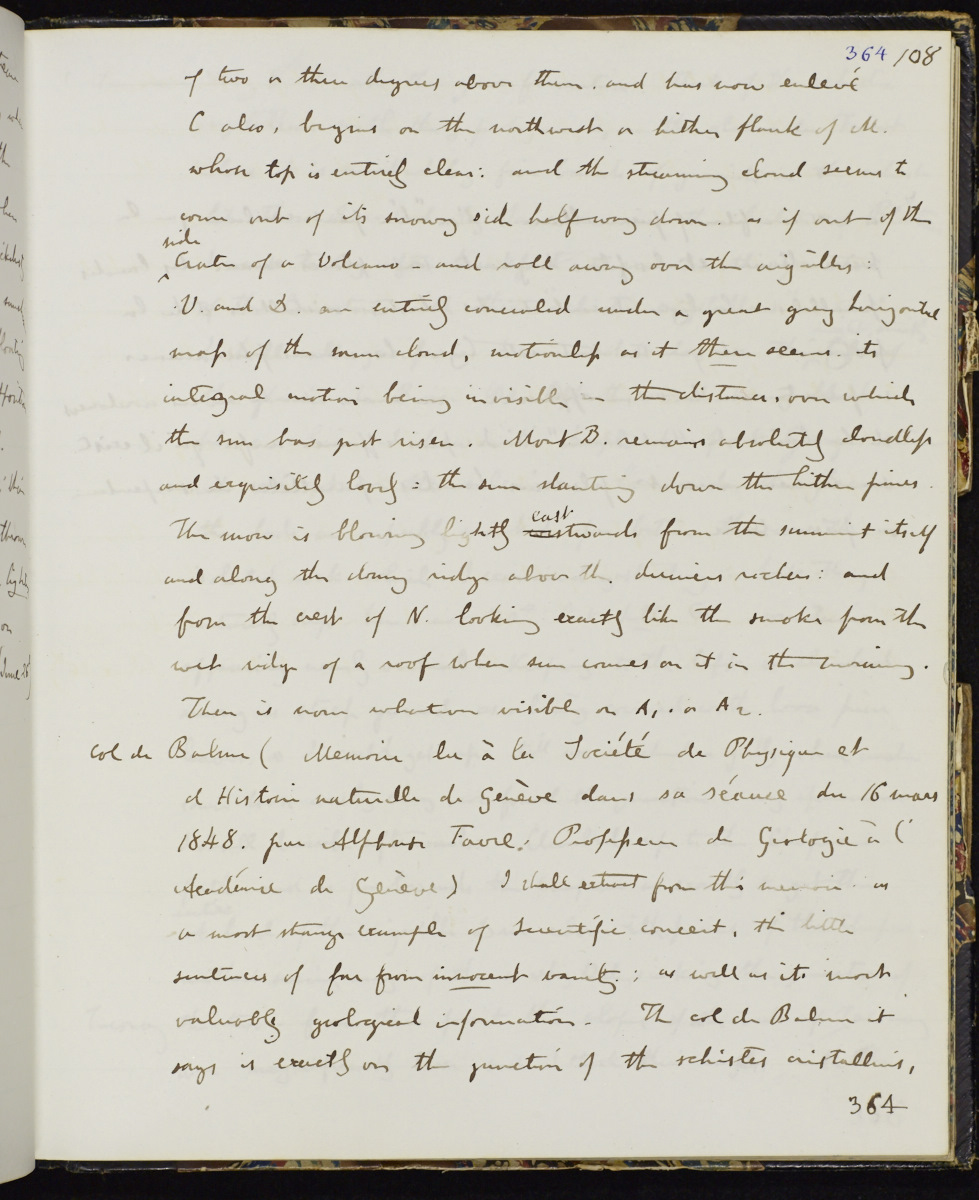 364 108
of two or three degrees above them. and has now enlevé
C also, begins on the northwest or hither flank of M.
whose top is entirely clear: and the streaming cloud seems to
come out of its snowy side halfway down. as if out of the
side
Crater of a Volcano - and roll away over the aiguilles:
V. and D. are entirely concealed under a great grey horizontal
mass of the same cloud, motionless as it there seems. its
integral motion being invisible in the distance. over which
the sun has just risen. Mont B. remains absolutely cloudless
and exquisitely lovely: the sun slanting down the hither pines.
east
The snow is blowing lightly westwards from the summit itself
and along the ridge above the derniers rochers: and
from the crest of N. looking exactly like the smoke from the
wet ridge of a roof when sun comes on it in the morning.
There is none whatever visible on A1. or A2.
Col de Balme (Memoire lu à la Société de Physique et
d Histoire naturelle de Genève dans sa séance du 16 mars
1848. par Alphonse Favre, Professeur de Geologie à l
Académie de Genève) I shall extract from this memoir. as
a most strange example of Scientific conceit, the little
sentences of far from innocent vanity; as well as its most
valuable geological information. The col de Balme it
says is exactly on the junction of the schistes cristallins,
364